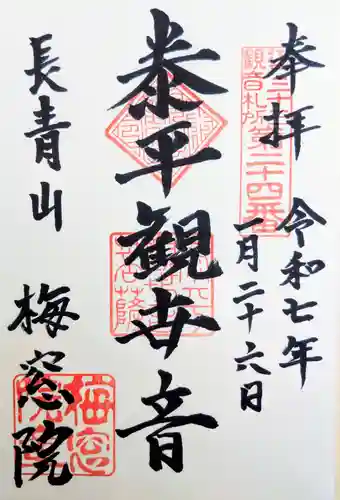 奉拝
令和七年
一月二十六日
江戸三十三
観音札所第二十四番
泰平観世音
長青山
梅窓院
梅窓院